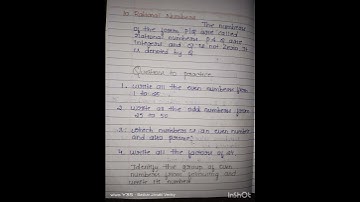 b) Rational Numbers
The numbers
of the form P/q are called
Rational numbers. P & q are
integers and q is not zero. It
is denoted by Q
Questions to practice
1. write all the even numbers from
1 to 25
2. write all the odd numbers from
25 to 50
3. which number is an even number
and also prime?
4. write all the factors of
Identify the group of
numbers from following and
write its
InShOt